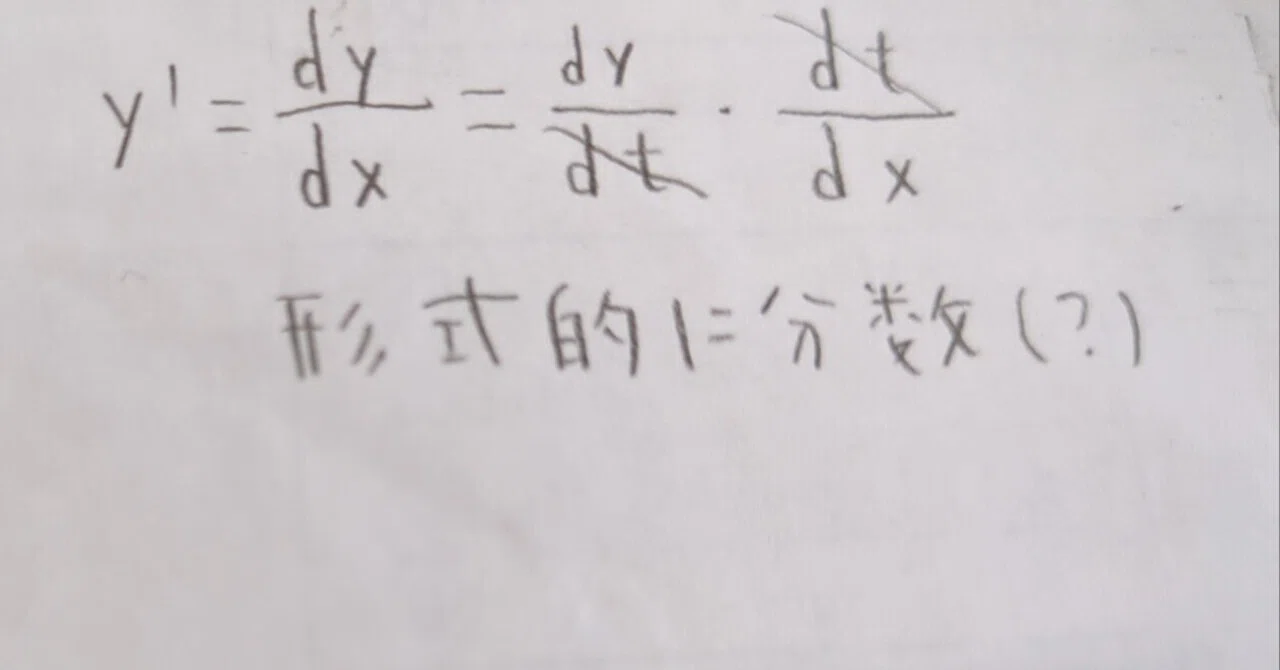 y' = dy/dx = dy/dt · dt/dx
形式的に分数(?)